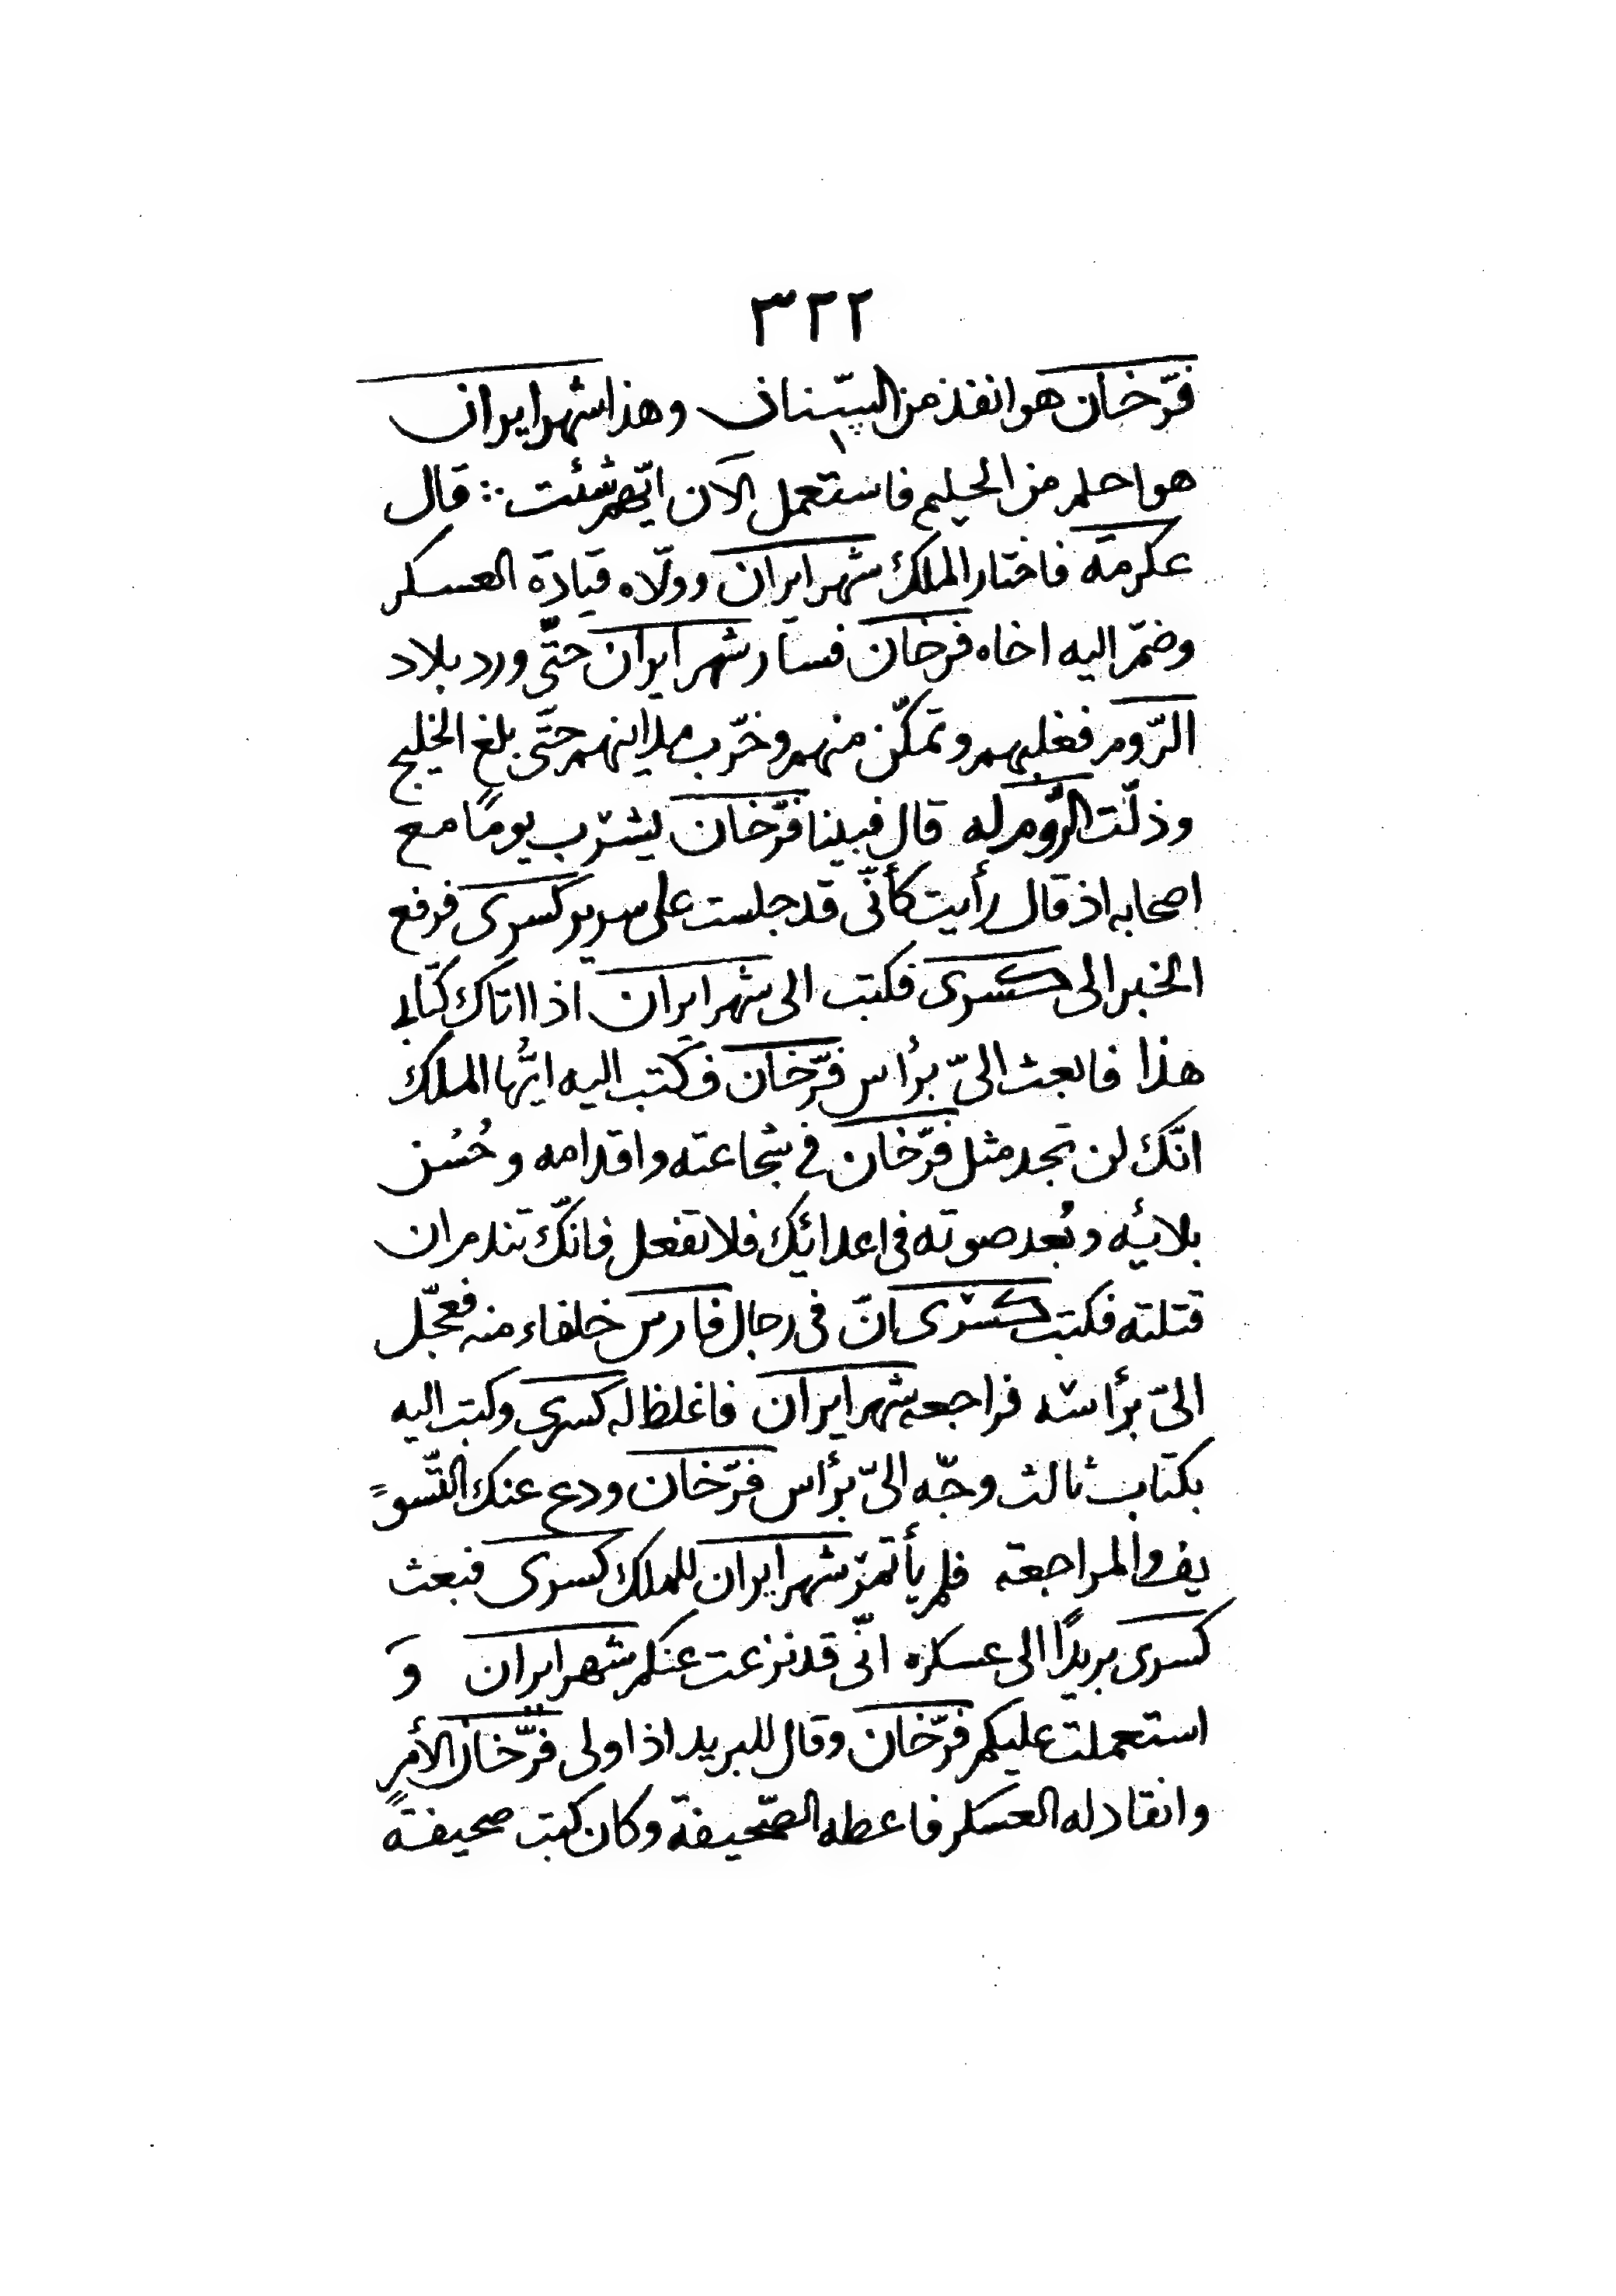 ٣٢٢
فرّخان هو انفذ من السّنان وهذا شهر ايران
هو احلم من الحليم فاستعمل الآن ايّهم شئت ∴ قال
عكرمة فاختار الملك شهر ايران وولّاه قيادة العسكر
وضمّ اليه اخاه فرخان فسار شهر ايران حتّى ورد بلاد
الرّوم فغلبهم وتمكّن منهم وخرّب مداينهم حتّى بلغ الخليج
وذلّت الرّوم له قال فبينا فرّخان يشرب يومًا مع
اصحابه اذ قال رأيت كأنّى قد جلست على سرير كسرى فرفع
الخبر الى كسرى فكتب الى شهر ايران اذا اتاك كتابى
هذا فابعث الىّ برأس فرّخان فكتب اليه ايّها الملك
انّك لن تجد مثل فرّخان فى شجاعته واقدامه وحُسن
بلائه وبُعد صوته فى اعدائك فلا تفعل فانّك تندم ان
قتلته فكتب كسرى انّ فى رجال فارس خلفاء منه فعجّل
الىّ برأسه فراجعه شهر ايران فاغلظ له كسرى وكتب اليه
بكتاب ثالث وجّه الىّ برأس فرّخان ودع عنك التّسو=
يف والمراجعة فلم يأتمر شهر ايران للملك كسرى فبعث
كسرى بريدًا الى عسكره انّى قد نزعت عنكم شهر ايران وَ
استعملت عليكم فرّخان وقال للبريد اذا ولى فرّخان الأمر
وانقاد له العسكر فاعطه الصّحيفة وكان كتب صحيفةً